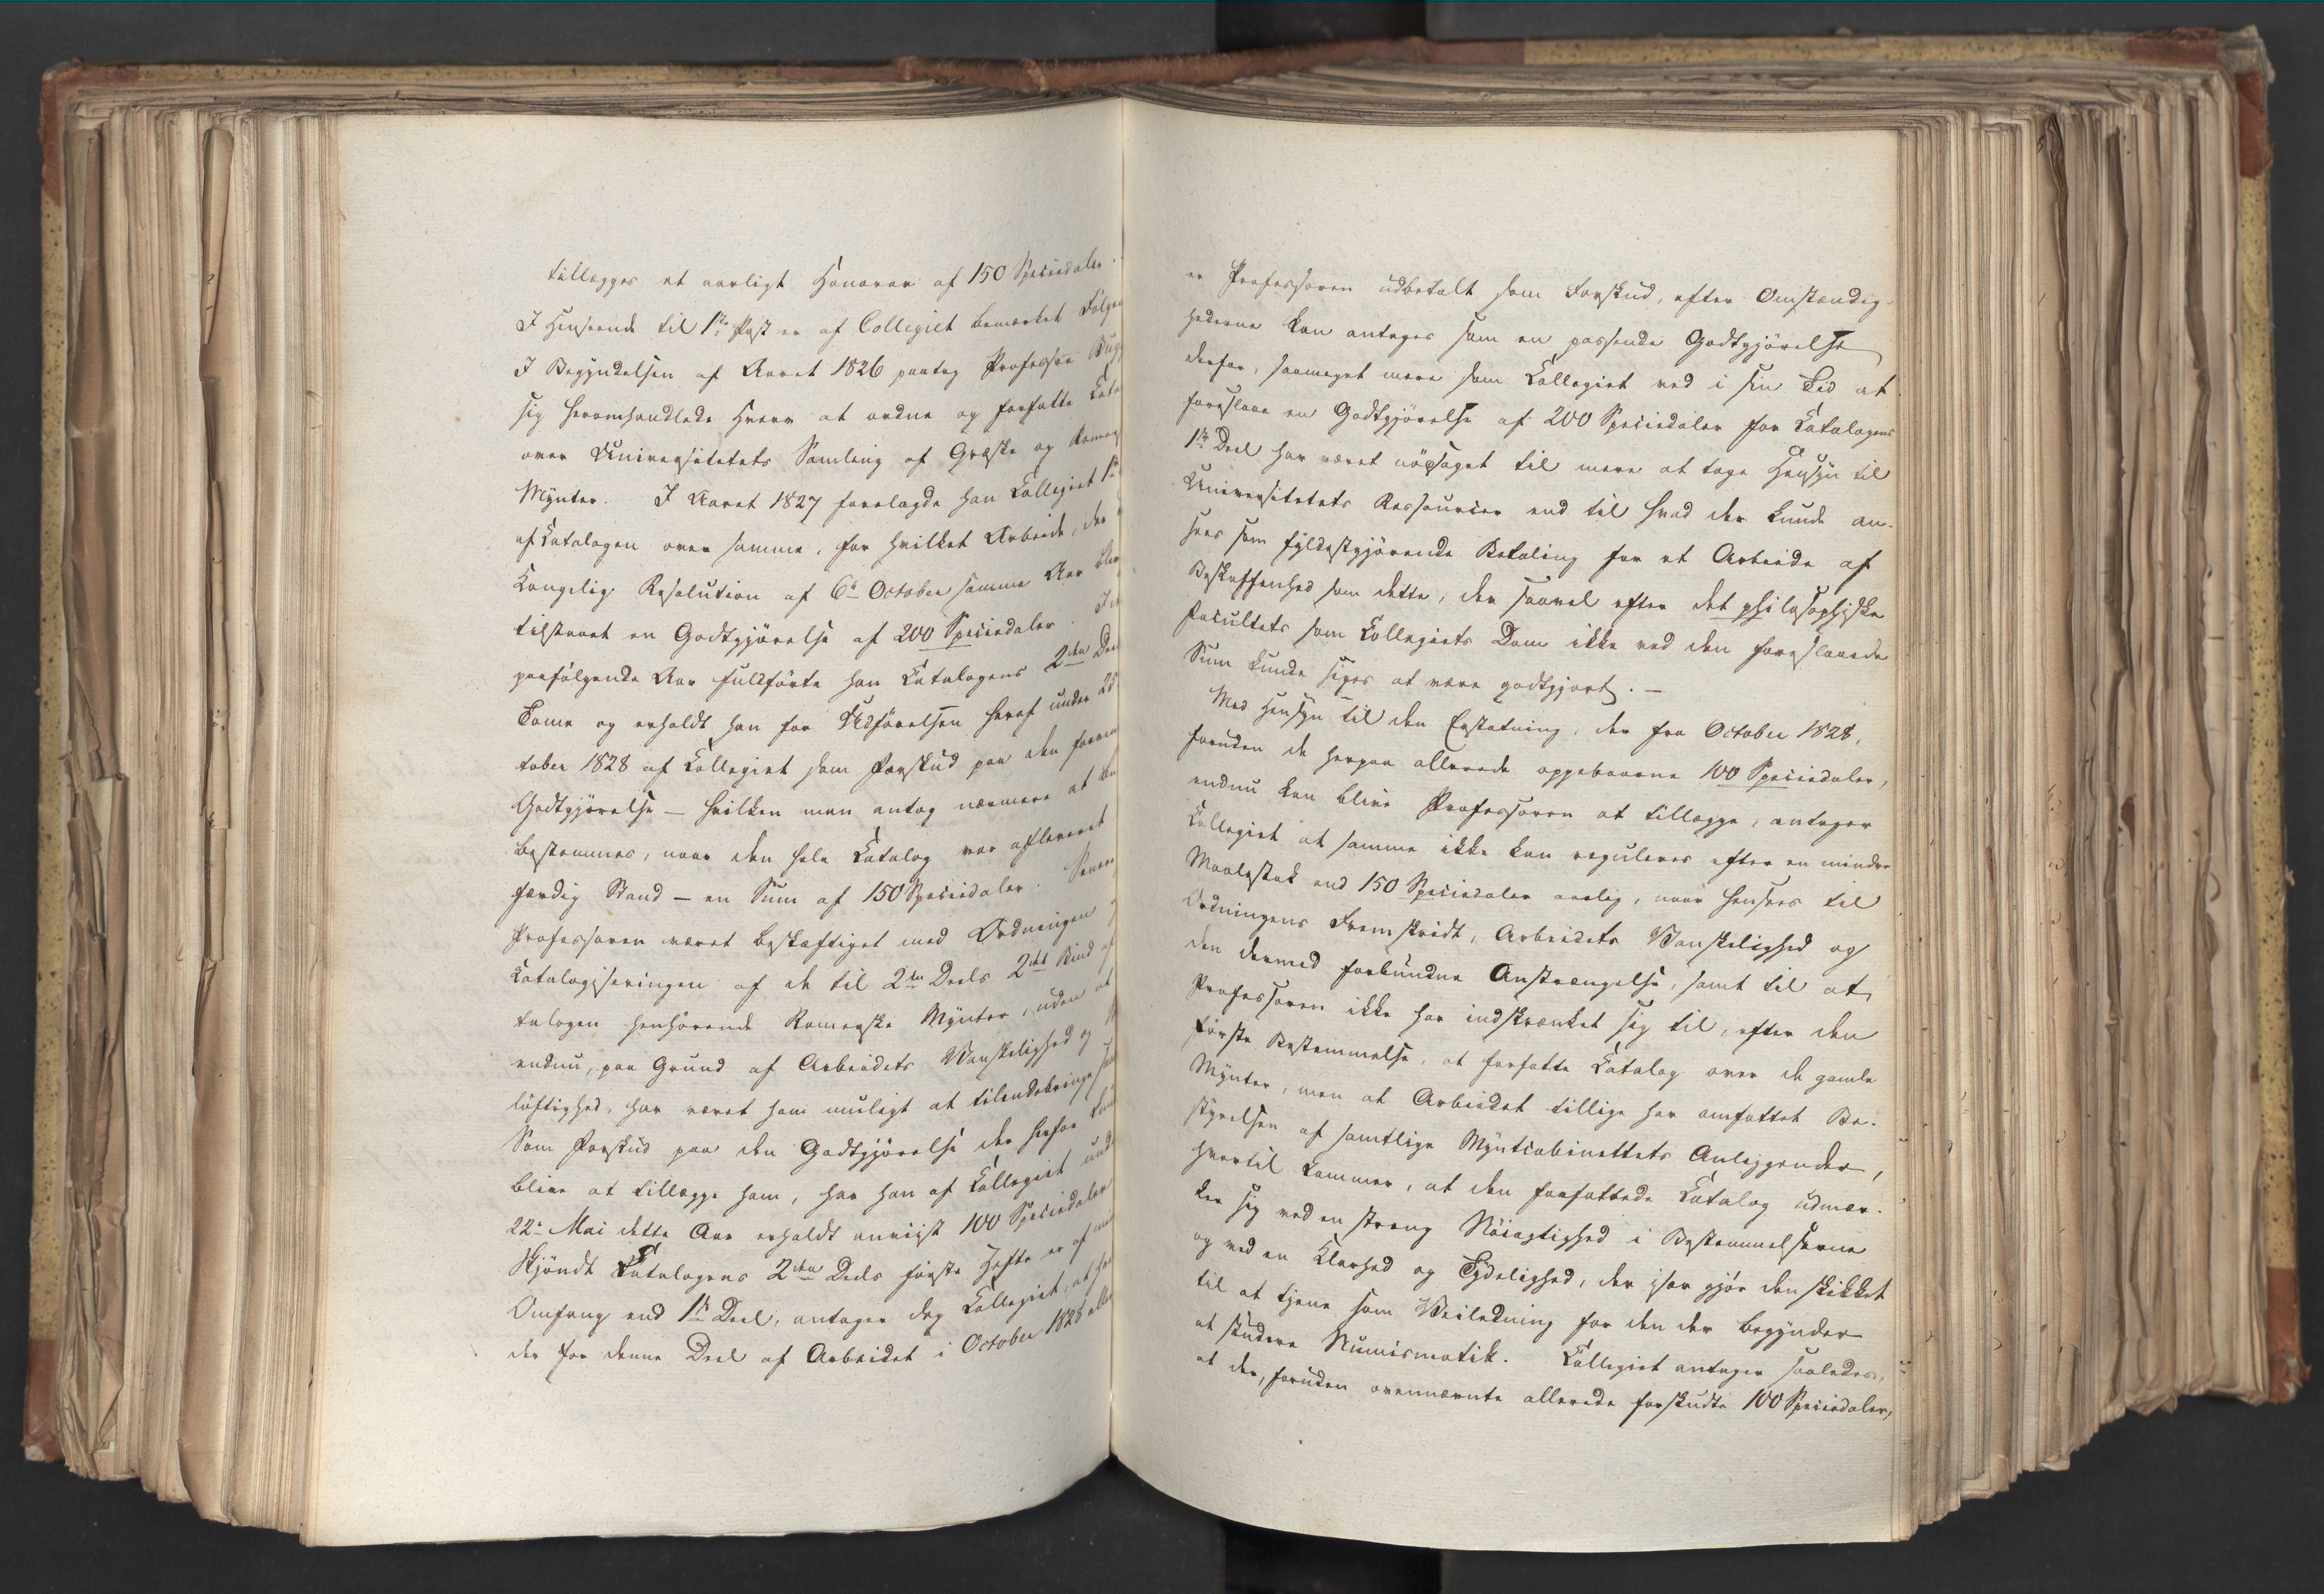 tillægges et aarligt Honorar af 150 Speciedaler.
I Henseende til 1ste Post er af Collegiet bemærket Følgen
I Begyndelsen af Aaret 1826 paatog Professor
sig heromhandlede Hverv at ordne og forfatte Cata
over Universitetets Samling af Græske og Romer
Mynter. I Aaret 1827 forelagde han Collegiet 1ste
af Catalogen over samme, for hvilket Arbeide, der
Kongelig Resolution af 6te October samme Aar blev
tilstaaet en Godtgjörelse af 200 Speciedaler. I
paafølgende Aar fuldførte han Catalogens 2den Deel
Tome og erholdt han for Udførelsen heraf under 25
tober 1828 af Collegiet som Forskud paa den
Godtgjörelse – hvilken man antog nærmere at
bestemmes, naar den hele Catalog var afleveret
færdig Stand – en Sum af 150 Speciedaler. Senere
Professoren været beskæftiget med Ordningen
Catalogiseringen af de til 2den Deels 2det Bind af
talogen henhörende Romerske Mynter, uden at
endnu, paa Grund af Arbeidets Vanskelighed og
löftighed, har været ham muligt at tilendebringe
Som Forskud paa den Godtgjörelse der herfor
blive at tillægge ham, har han af Collegiet und
22de Mai dette Aar erholdt anviist 100 Speciedaler
Skjöndt Catalogens 2den Deels første Hefte er af
Omfang end 1ste Deel, antager dog Collegiet, at
der for denne Deel af Arbeidet i October 1828
er Professoren udbetalt som Forskud, efter Omstændig-
hederne kan antages som en passende Godtgjörelse
derfor, saameget mere som Collegiet ved i sin Tid at
foreslaae en Godtgjörelse af 200 Speciedaler for Catalogens
1ste Deel har været nödsaget til mere at tage Hensyn til
Universitetets Ressourcer end til hvad der kunde an-
sees som fyldestgjörende Betaling for et Arbeide af
Beskaffenhed som dette, der saavel efter det philosophiske
Facultets som Collegiets Dom ikke ved den foreslaaede
Sum kunde siges at være godtgjort. –
Med Hensyn til den Erstatning, der fra October 1828,
foruden de herpaa allerede oppebaarne 100 Speciedaler,
endnu kan blive Professoren at tillægge, antager
Collegiet at samme ikke kan reguleres efter en mindre
Maalestok end 150 Speciedaler aarlig, naar hensees til
Ordningens Fremskridt, Arbeidets Vanskelighed og
den dermed forbundne Anstrængelse, samt til at
Professoren ikke har indskrænket sig til, efter den
første Bestemmelse, at forfatte Catalog over de gamle
Mynter, men at Arbeidet tillige har omfattet Be-
styrelsen af samtlige Myntcabinettets Anliggender,
hvortil kommer, at den forfattede Catalog udmær-
ker sig ved en streng Nöiagtighed i Bestemmelserne
og ved en Klarhed og Tydelighed, der især gjör den skikket
til at tjene som Veiledning for den der begynder
at studere Numismatik. Collegiet antager saaledes,
at der, foruden ovennævnte allerede forskudte 100 Speciedaler,